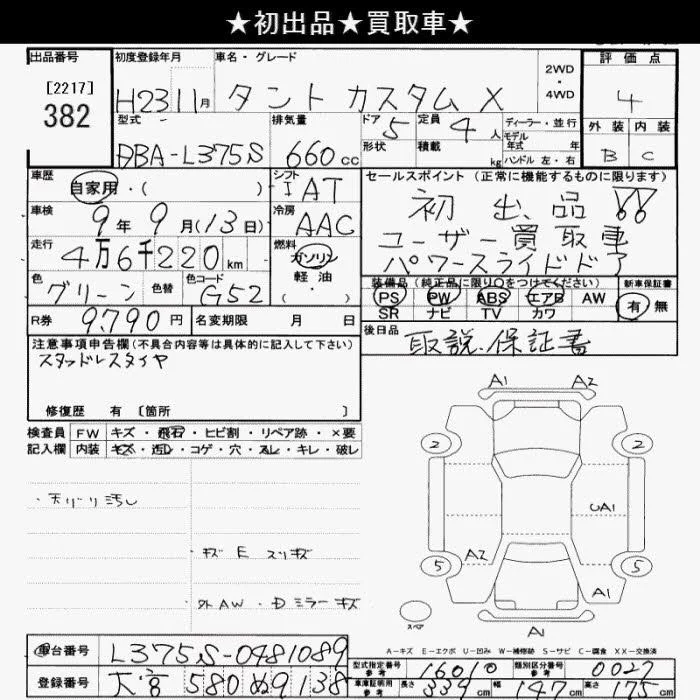 ★初出品★買取車★
出品番号 初度登録年月 車名・グレード 2WD・4WD 評価点
[2217]
382 H23 11月 タント カスタム X 4
型式 排気量 ドア 定員 ディーラー・並行 外装 内装
DBA-L375S 660cc 5 4人 モデル年式 年 B C
形状 積載 kg ハンドル 左・右
車歴 シフト セールスポイント(正常に機能するものに限ります)
自家用・( ) IAT 初出品!!
車検 冷房 ユーザー買取車
9年9月(13日) AAC パワースライドドア
走行 燃料
4万6千220km ガソリン
軽・油
( )
色 色替 色コード 装備品(純正品に限り○をつけてください) 新車保証書
グリーン G52 PS PW ABS エアB AW 有 無
SR ナビ TV カワ
R券 9,790円 名変期限 月 日 後日品 取説.保証書
注意事項申告欄(不具合内容等は具体的に記入して下さい)
スタッドレスタイヤ
修復歴 有 [箇所 ]
検査員 FW キズ・飛石・ヒビ割・リペア跡・×要
記入欄 内装 キズ・汚レ・コゲ・穴・スレ・キレ・破レ
A1 A2
2 2
UA1
A2
5 5
A1
スペア
A1
・天バリ汚レ
・キズ E スリキズ
外AW・D ミラーキズ
A-キズ E-エクボ U-凹み W-補修跡 S-サビ C-腐食 XX-交換済
車台番号 L375S-0481089 型式指定番号 参考 16010 類別区分番号 参考 0027
登録番号 大宮 580 ぬ 9138 車庫証明用 参考 長さ 339cm 幅 147cm 高さ 175cm